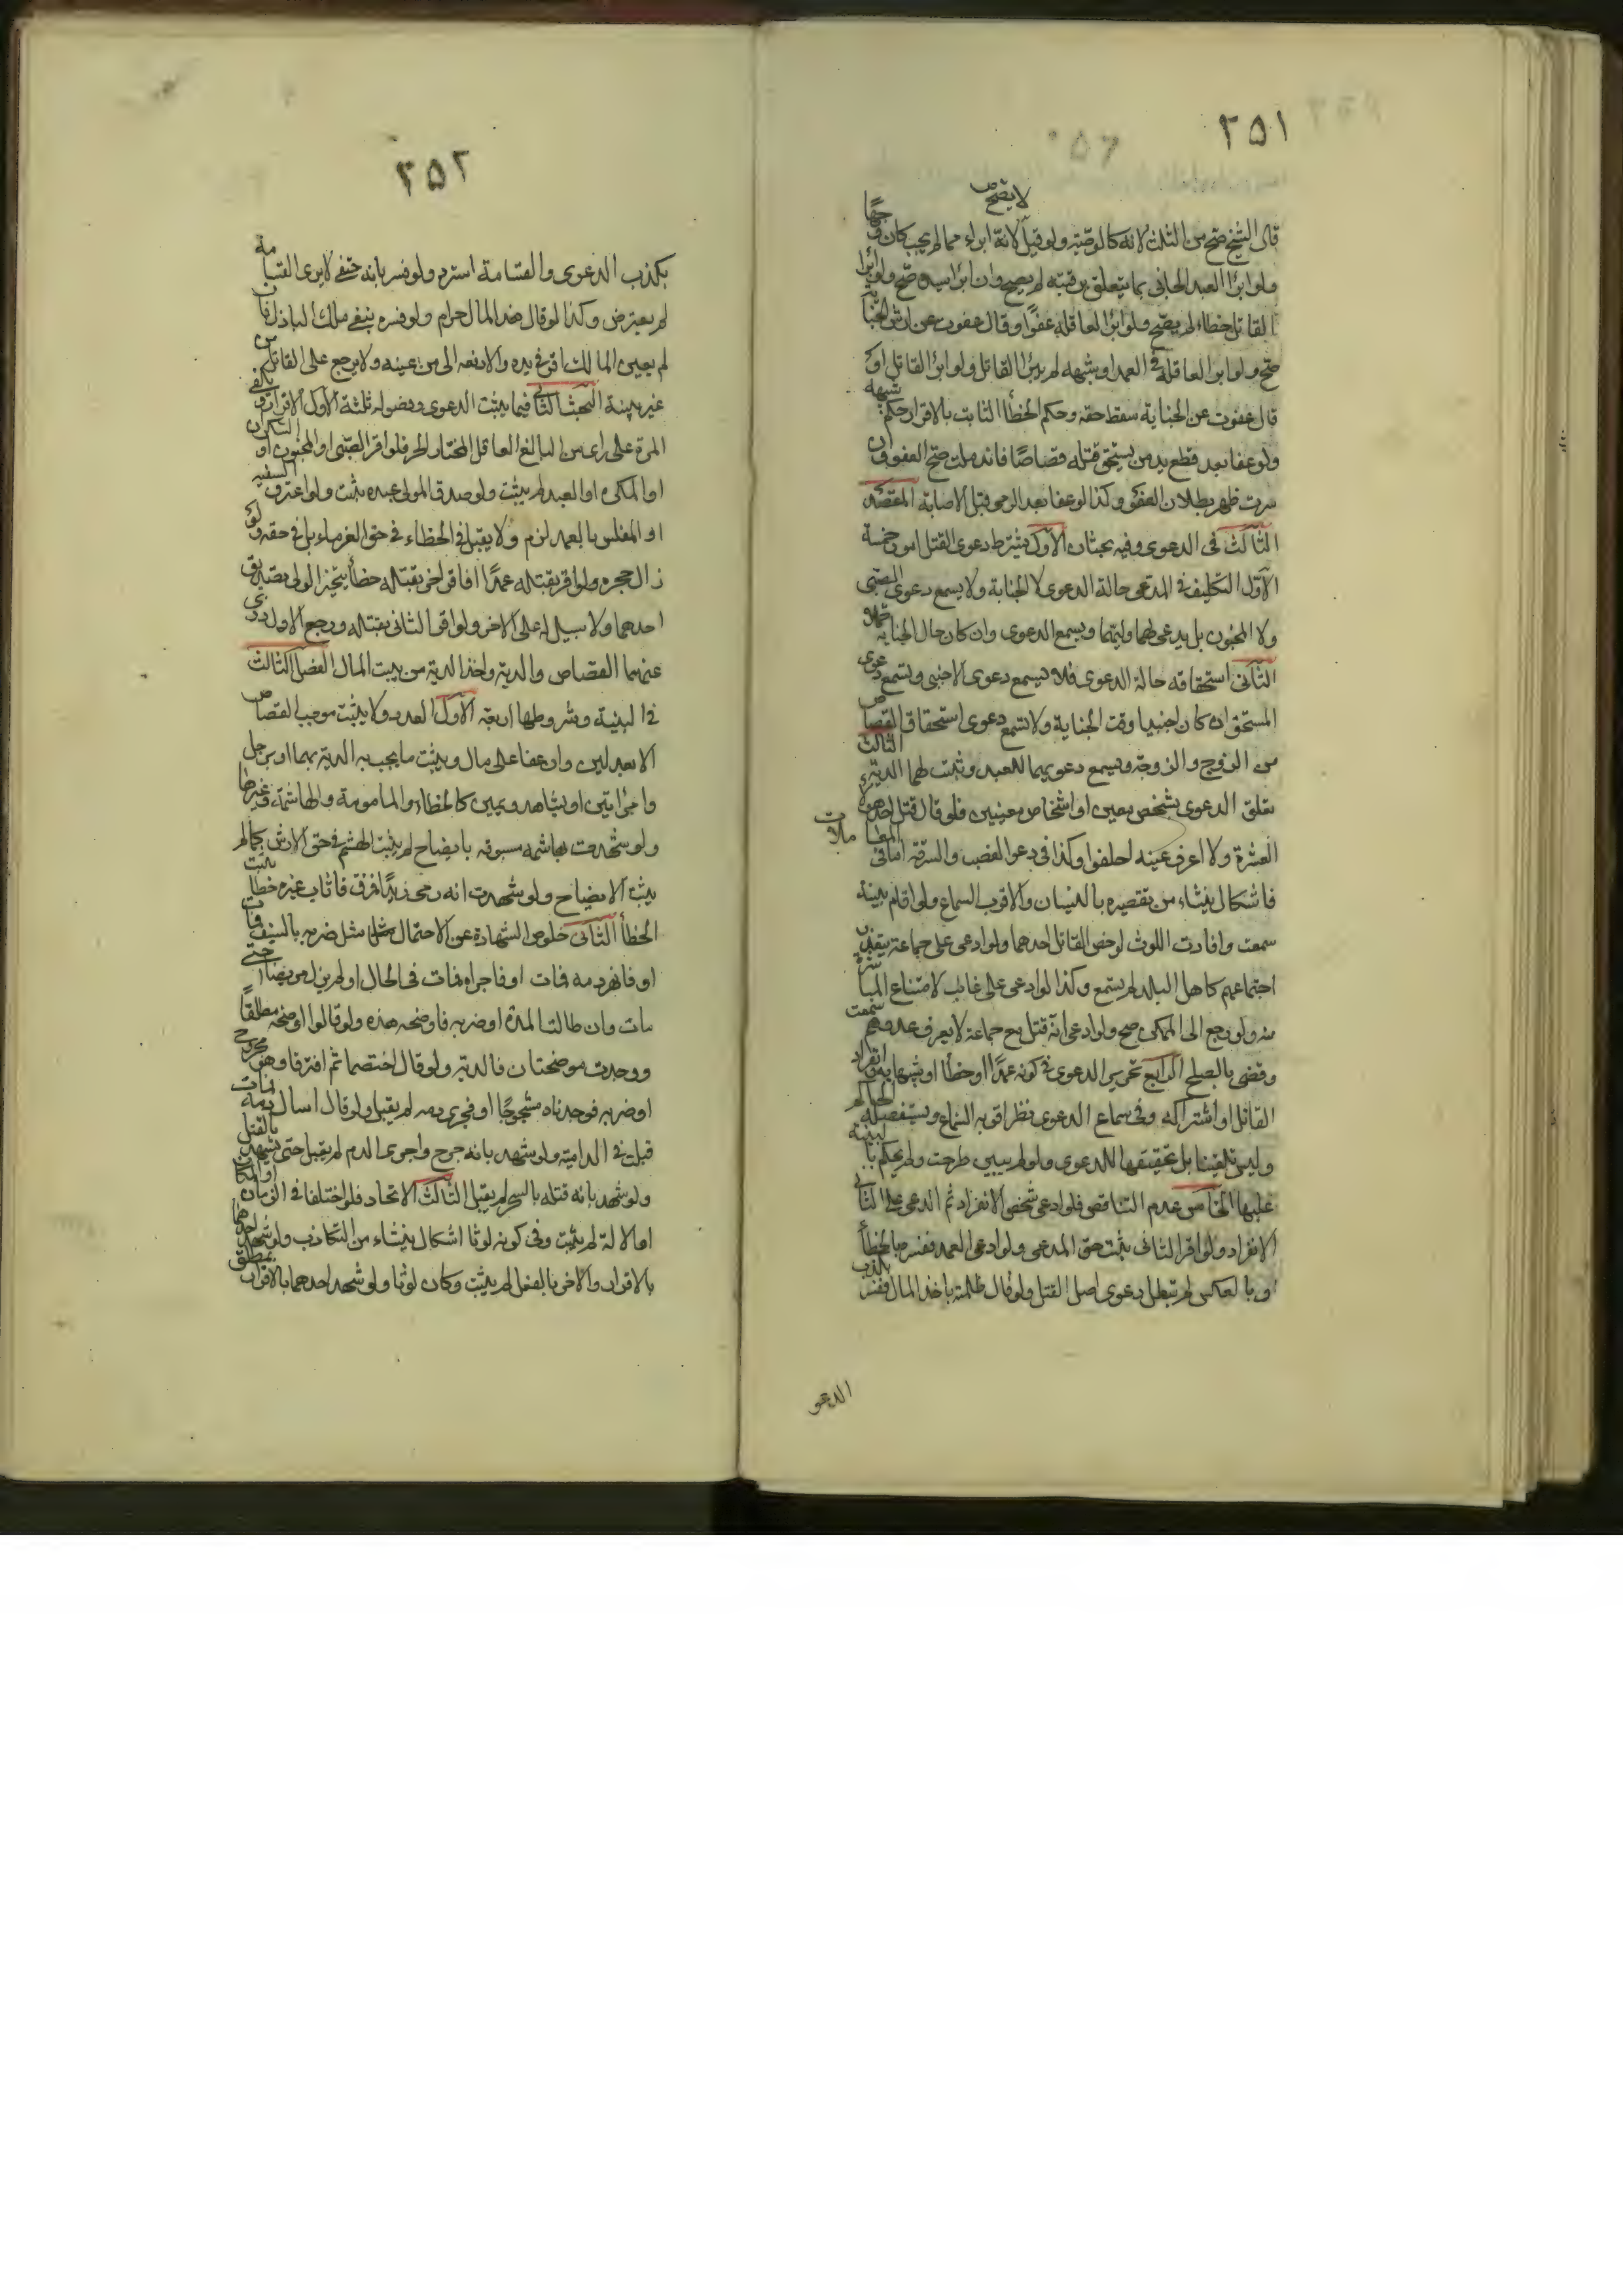 ٢٥١
لا يصح
قال الشيخ صح من الثلث لانه كالوصية ولو قيل لانه ابراء مما لم يجب كان وجها
ولو ابرأ العبد الجانى بما يتعلق برقبته لم يصح وان ابرأ سيده صح ولو ابرأ
القاتل خطاء لم يصح ولو ابرأ العاقلة عفوا او قال عفوت عن ارش الجناية
صح ولو ابرأ العاقلة فى العمد او شبهه لم يبرأ القاتل ولو ابرأ القاتل او
قال عفوت عن الجناية سقط حقه وحكم الخطأ الثابت بالاقرار حكم شبهه
ولو عفا بعد قطع يد من يستحق قتله قصاصا فاندملت صح العفو وان
سرت ظهر بطلان العفو وكذا لو عفا بعد الرمى قبل الاصابة المقصد
الثالث فى الدعوى وفيه بحثان الاول يشترط دعوى القتل امور خمسة
الاول التكليف فى المدعى حالة الدعوى لا الجناية ولا يسمع دعوى الصبى
ولا المجنون بل يدعى لهما وليهما ويسمع الدعوى وان كان حال الجناية حملا
الثانى استحقاقه حالة الدعوى فلا يسمع دعوى الاجنبى وتسمع دعوى
المستحق ان كان اجنبيا وقت الجناية ولا تسمع دعوى استحقاق القصاص
من الزوج والزوجة ويسمع دعويهما للعبد وثبت لهما الدية الثالث
تعلق الدعوى بشخص معين او اشخاص معينين فلو قال قتل احد هؤلاء
العشرة ولا اعرف عينه احلفوا وكذا فى دعوا الغصب والسرقة اما فى المعاملات
فاشكال ينشاء من تقصيره بالنسيان والاقرب السماع ولو اقام بينة
سمعت وافادت اللوث لو خص القاتل احدهما ولو ادعى على جماعة يتعذر
اجتماعهم كاهل البلد لم يسمع وكذا لو ادعى على غائب لامتناع المباشرة
منه ولو رجع الى الممكن صح ولو ادعى انه قتل مع جماعة لا يعرف عددهم سمعت
وقضى بالصلح الرابع تحرير الدعوى فى كونه عمدا او خطأ او شبهها وانفراد
القاتل او اشتراكه وفى سماع الدعوى نظر اقربه السماع ويستفصله الحاكم
وليس تلقينا بل تحقيقها للدعوى ولو لم يبين طرحت ولم يحكم بالبينة
عليها الخامس عدم التناقض فلو ادعى شخص الانفراد ثم ادعى على الثانى
الانفراد ولو اقر الثانى يثبت حق المدعى ولو ادعى العمد ففسره بالخطأ
او بالعكس لم تبطل دعوى اصل القتل ولو قال ظلمته باخذ المال ففسر بكذب
الدعو
٢٥٢
بكذب الدعوى والقسامة استرد ولو فسر بانه حنفى لا يرى القسامة
لم يعترض وكذا لو قال هذا المال حرام ولو فسره بنفى ملك الباذل فان
لم يعين المالك اقر فى يده والا دفعه الى من عينه ولا يرجع على القاتل من
غير بينة البحث الثانى فيما يثبت الدعوى وفصوله ثلثة الاول الاقرار ويكفى
المرة على راى من البالغ العاقل المختار الحر فلو اقر الصبى او المجنون او السكران
او المكره او العبد لم يثبت ولو صدق المولى عبده يثبت ولو اعترف السفيه
او المفلس بالعمد لزم ولا يقبل فى الخطاء فى حق الغرماء بل فى حقه ولو
زال حجره ولو اقر بقتله عمدا فاقر اخر بقتله خطأ يتخير الولى تصديق
احدهما ولا سبيل له على الاخر ولو اقر الثانى بقتله ورجع الاول دوى
عنهما القصاص والدية واخذ الدية من بيت المال الفصل الثالث
فى البينة وشروطها اربعة الاول العدد ولا يثبت موجب القصاص
الا بعدلين وان عفا على مال ويثبت ما يجب به الدية بهما او برجل
وامرأتين او بشاهد ويمين كالخطاء والمامومة والهاشمة وغيرها
ولو شهدت بهاشمة مسبوقة بايضاح لم يثبت الهشم فى حق الارش كما لم
يثبت الايضاح ولو شهدت انه رمى زيدا فمرق فاصاب غيره خطأ يثبت
الخطأ الثانى خلوص الشهادة عن الاحتمال مثل ضربه بالسيف فمات
او فانهر دمه فمات او فاجراه فمات فى الحال او لم يزل مريضا حتى
مات وان طالت المدة او ضربه فاوضحه هذه ولو قالوا اوضحه مطلقا
ووجدت موضحتان فالدية ولو قال اختصما ثم افترقا وهو مجروح
او ضربه فوجدناه مشجوجا او فجرى دمه لم يقبل ولو قال اسال دمه فمات
قبلت فى الدامية ولو شهد بانه جرح واجرى الدم لم يقبل حتى يشهد بالقتل
ولو شهد بانه قتله بالسحر لم يقبل الثالث الاتحاد فلو اختلفا فى الزمان او المكان
او الالة لم يثبت وفى كونه لوثا اشكال ينشاء من التكاذب ولو شهد احدهما
بالاقرار والاخر بالفعل لم يثبت وكان لوثا ولو شهد احدهما بالاقرار بمطلق